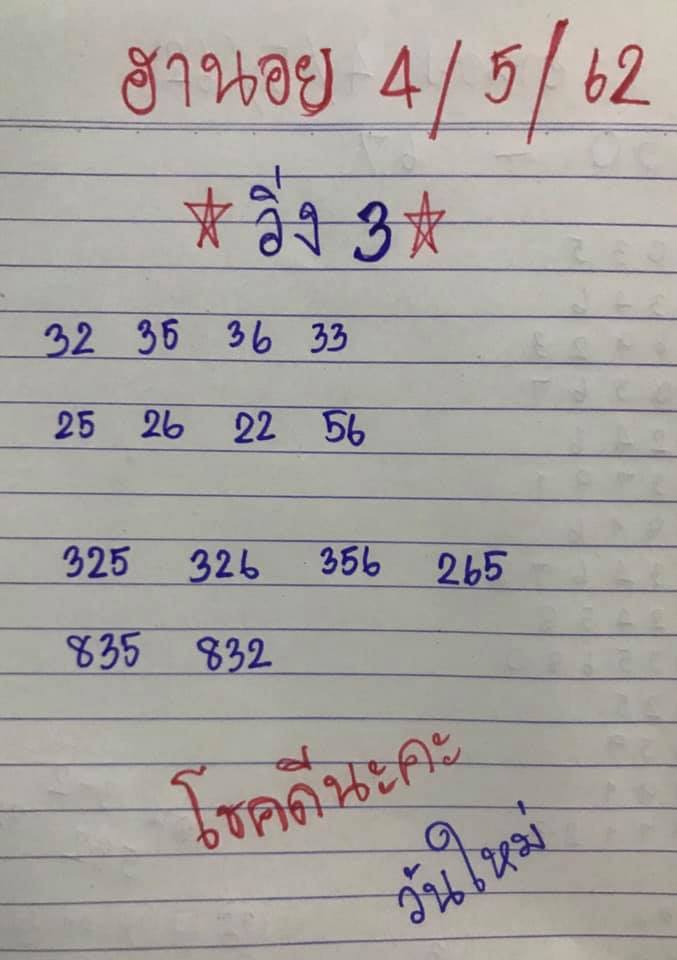 ฮานอย 4/5/62
วิ่ง 3
32 35 36 33
25 26 22 56
325 326 356 265
835 832
โชคดีนะคะ
วันใหม่